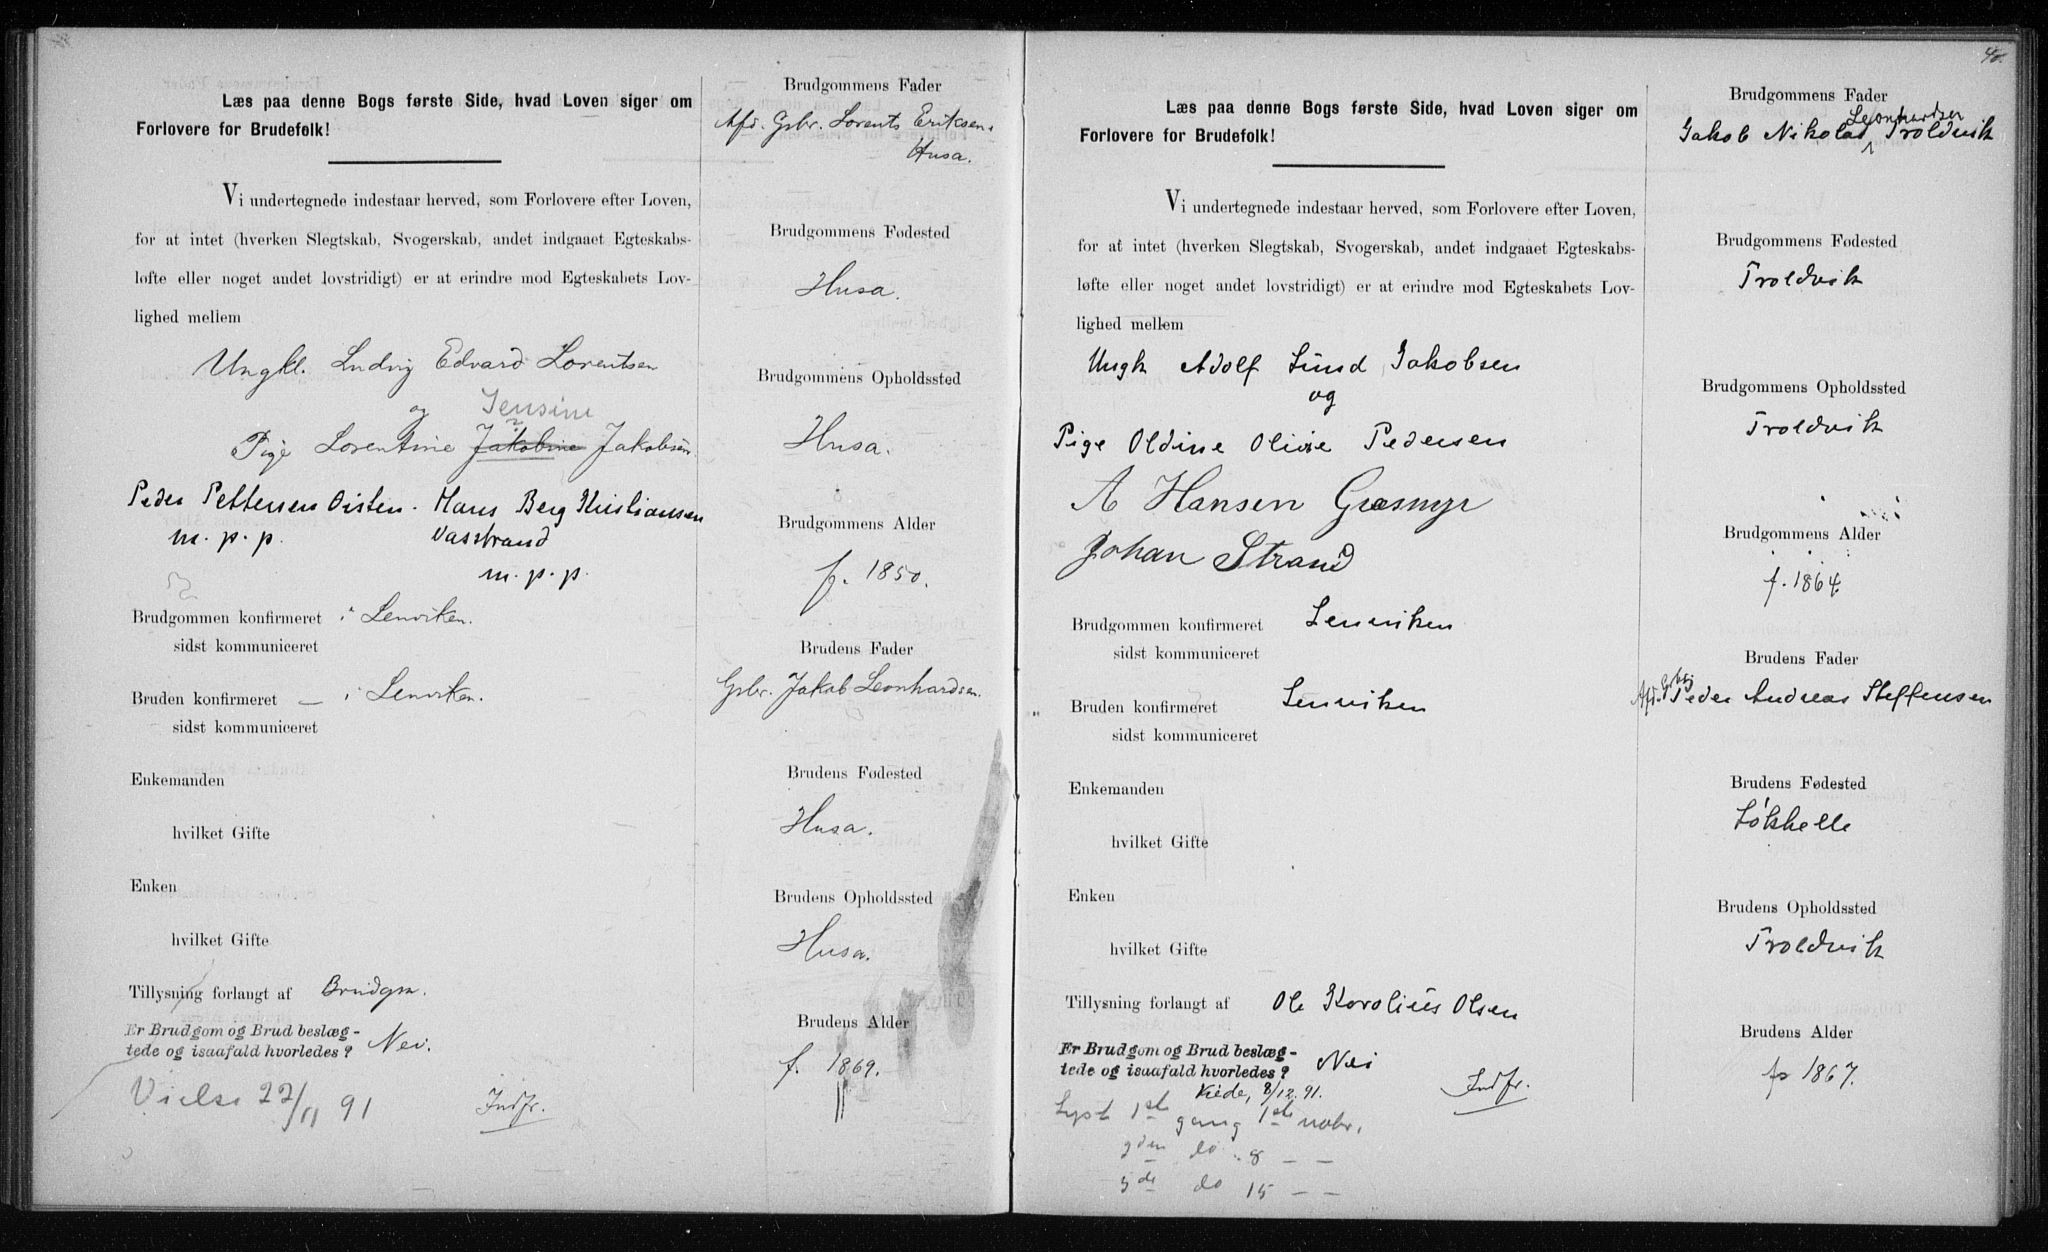 Læs paa denne Bogs første Side, hvad Loven siger om
Forlovere for Brudefolk!
Vi undertegnede indestaar herved, som Forlovere efter Loven,
for at intet (hverken Slegtskab, Svogerskab, andet indgaaet Egteskabs-
løfte eller noget andet lovstridigt) er at erindre mod Egteskabets Lov-
lighed mellem
Ungkl. Ludvig Edvard Lorentsen
og Jensine
Pige Lorentine Jakobine Jakobsen.
Peder Pettersen Oisten. Hans Berg Kristiansen
m. p. p. Vasstrand
m. p. p.
Brudgommen konfirmeret i Lenviken.
sidst kommuniceret
Bruden konfirmeret — i Lenviken.
sidst kommuniceret
Enkemanden
hvilket Gifte
Enken
hvilket Gifte
Tillysning forlangt af Brudgm.
Er Brudgom og Brud beslæg-
tede og isaafald hvorledes? Nei.
Vielse 22/11 91 Indfr.
Brudgommens Fader
Afd. Gbr. Lorents Eriksen.
Husa.
Brudgommens Fødested
Husa.
Brudgommens Opholdssted
Husa.
Brudgommens Alder
f. 1850.
Brudens Fader
Gbr. Jakob Leonhardsen.
Brudens Fødested
Husa.
Brudens Opholdssted
Husa.
Brudens Alder
f. 1869.
40.
Læs paa denne Bogs første Side, hvad Loven siger om
Forlovere for Brudefolk!
Vi undertegnede indestaar herved, som Forlovere efter Loven,
for at intet (hverken Slegtskab, Svogerskab, andet indgaaet Egteskabs-
løfte eller noget andet lovstridigt) er at erindre mod Egteskabets Lov-
lighed mellem
Ungk Adolf Lund Jakobsen
og
Pige Oldine Olivie Pedersen
A Hansen Græsmyr
Johan Strand
Brudgommen konfirmeret Lenviken
sidst kommuniceret
Bruden konfirmeret Lenviken
sidst kommuniceret
Enkemanden
hvilket Gifte
Enken
hvilket Gifte
Tillysning forlangt af Ole Karolius Olsen
Er Brudgom og Brud beslæg-
tede og isaafald hvorledes? Nei
Viede, 8/12.91. Indfr.
Lyst 1ste gang 1ste nobr.
2den do 8 — —
3de do 15 — —
Brudgommens Fader
Leonhardsen
Jakob Nikolai Troldvik
Brudgommens Fødested
Troldvik
Brudgommens Opholdssted
Troldvik
Brudgommens Alder
f. 1864.
Brudens Fader
Afd. Peder Andreas Steffensen
Brudens Fødested
Løkhelle
Brudens Opholdssted
Troldvik
Brudens Alder
f. 1867.